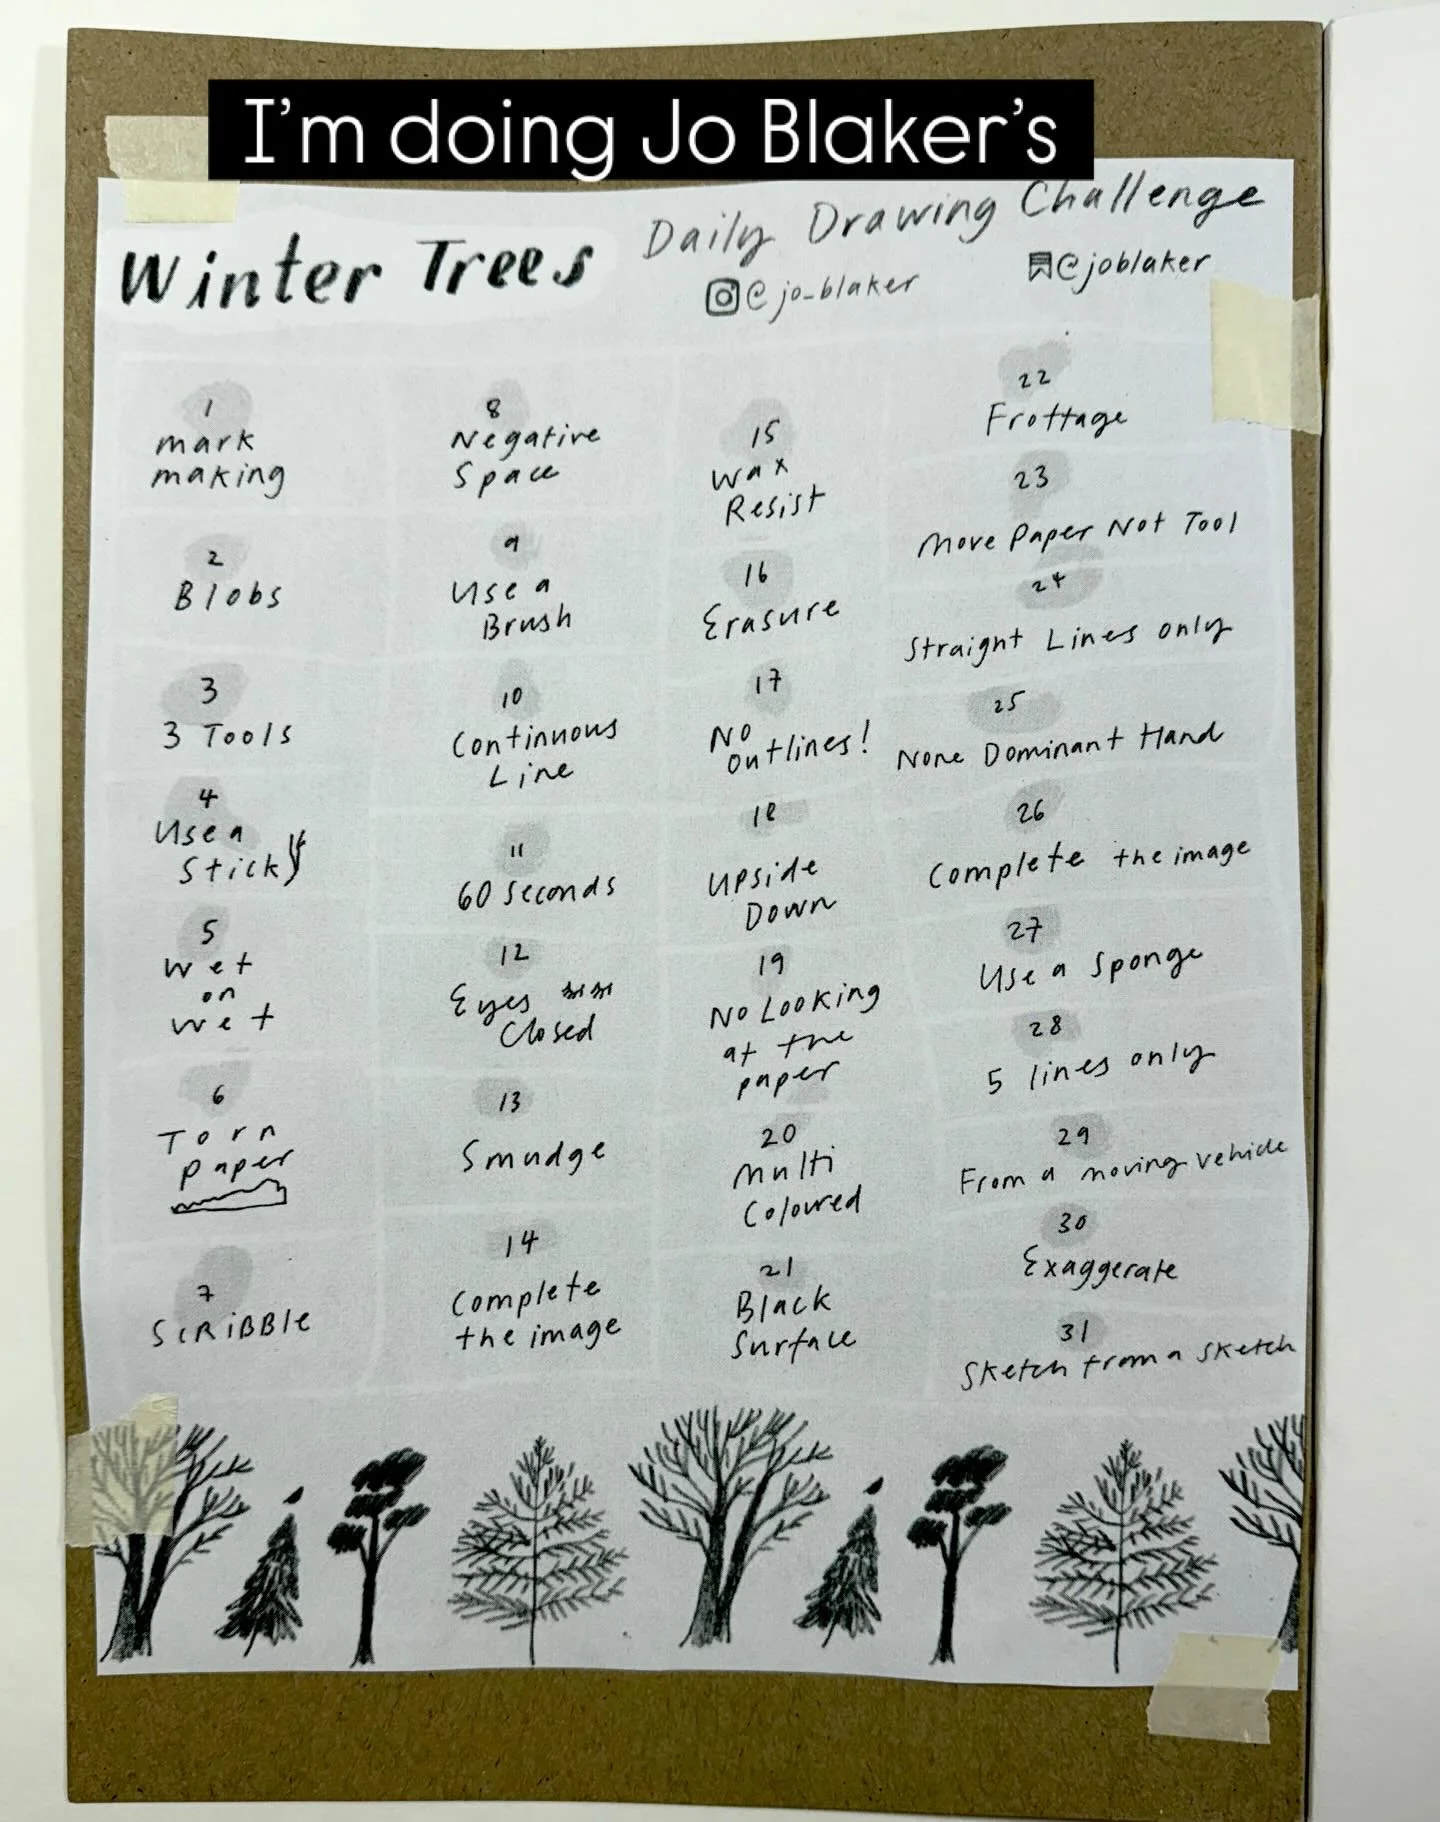 I'm doing Jo Blaker's
Winter Trees
Daily Drawing Challenge
@jo_blaker
@joblaker
1
mark
making
2
Blobs
3
3 Tools
4
Use a
Stick
5
Wet
on
wet
6
Torn
paper
7
SCRiBBle
8
Negative
Space
9
Use a
Brush
10
Continuous
Line
11
60 Seconds
12
Eyes
Closed
13
Smudge
14
Complete
the image
15
Wax
Resist
16
Erasure
17
No
Outlines!
18
Upside
Down
19
No Looking
at the
paper
20
Multi
Coloured
21
Black
Surface
22
Frottage
23
Move Paper Not Tool
24
Straight Lines only
25
None Dominant Hand
26
Complete the image
27
Use a Sponge
28
5 lines only
29
From a moving vehicle
30
Exaggerate
31
Sketch from a sketch